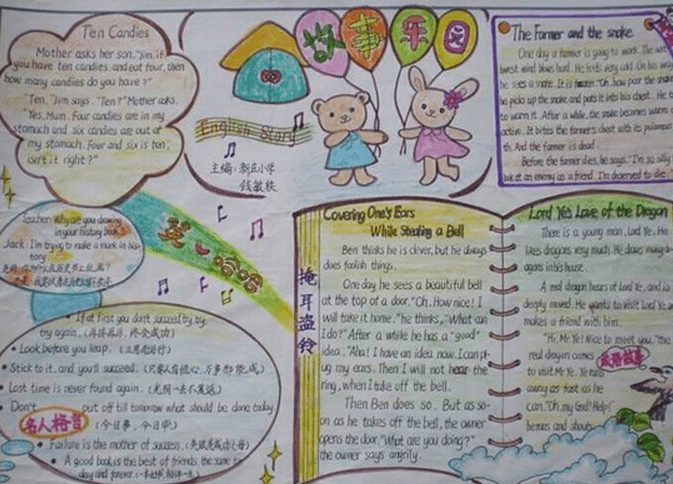 Ten Candies
Mother asks her son, "Jim, if
you have ten candies, and eat four, then
how many candies do you have?"
"Ten," Jim says. "Ten?" Mother asks.
"Yes, Mum. Four candies are in my
stomach and six candies are out of
my stomach. Four and six is ten,
isn't it right?"
故事乐园
English Story
主编:新庄小学
钱敏轶
The Farmer and the snake
One day a farmer is going to work. The
west wind blows hard. He feels very cold. On his way
he sees a snake. It is frozen. "Oh, how poor the snake
he picks up the snake and puts it into his chest. He t
to warm it. After a while, the snake becomes warm a
active. It bites the farmer's chest with its poisonous
th. And the farmer is dead.
Before the farmer dies, he says, "I'm so silly
look at an enemy as a friend. I'm deserved to die.
Teacher: Why are you drawing
in your history book?
Jack: I'm trying to make a mark in his
tory.
英 哈哈
If at first you don't succeed, try, try,
try again. (再接再厉,终会成功)
Look before you leap. (三思而后行)
Stick to it, and you'll succeed. (只要人有恒心,万事都能成)
Lost time is never found again. (光阴一去不复返)
Don't put off till tomorrow what should be done today.
(今日事,今日毕)
名人格言
Failure is the mother of success. (失败是成功之母)
A good book is the best of friends, the same to
day and forever.
掩耳盗铃
Covering One's Ears
While Stealing a Bell
Ben thinks he is clever, but he always
does foolish things.
One day he sees a beautiful bell
at the top of a door. "Oh, How nice! I
will take it home." he thinks, "What can
I do?" After a while he has a "good"
idea. "Aha! I have an idea now. I can pl-
ug my ears. Then I will not hear the
ring, when I take off the bell.
Then Ben does so. But as so-
on as he takes off the bell, the owner
opens the door. "What are you doing?"
the owner says angrily.
Lord Ye's Love of the Dragon
There is a young man, Lord Ye. He
likes dragons very much. He draws many dr-
agons in his house.
A real dragon hears of Lord Ye, and is
deeply moved. He wants to visit Lord Ye an
makes a friend with him.
"Hi, Mr Ye! Nice to meet you." the
real dragon comes
to visit Mr Ye. Ye runs
away as fast as he
can. "Oh, my God! Help!"
he runs and shouts.
成语故事